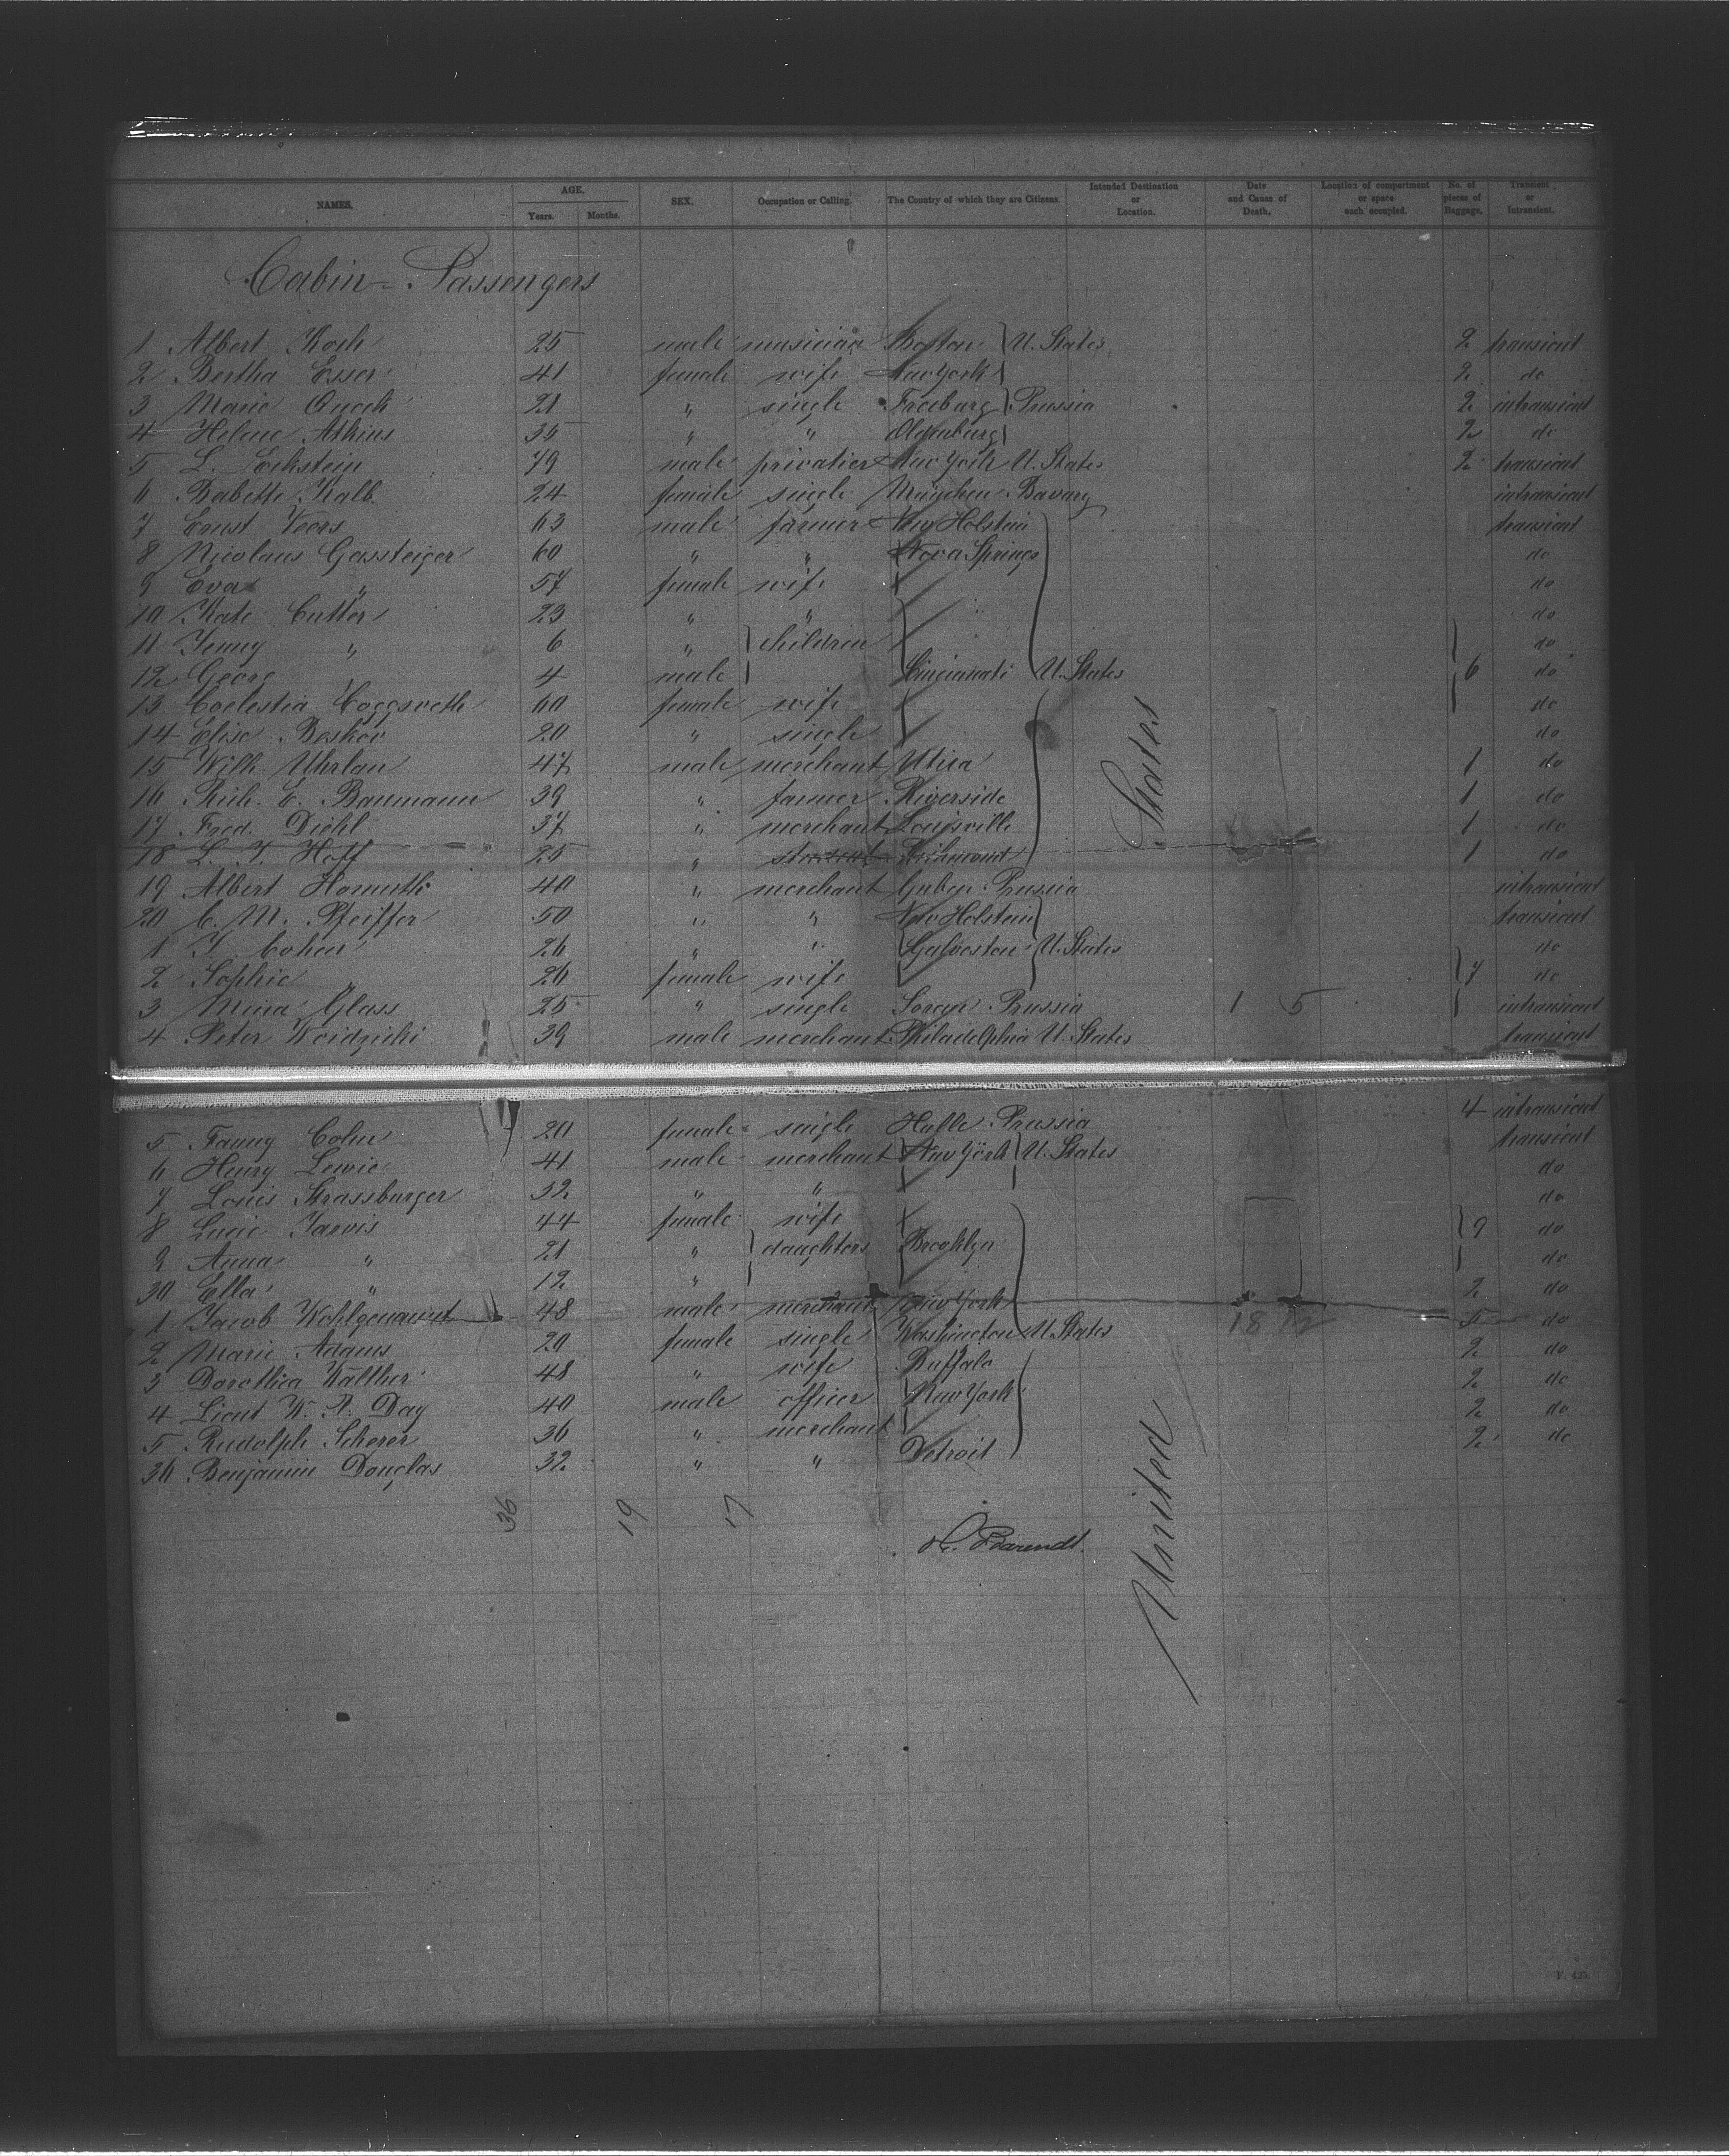 NAMES. AGE. Years. Months. SEX. Occupation or Calling. The Country of which they are Citizens. Intended Destination or Location. Date and Cause of Death. Location of compartment or space each occupied. No. of pieces of Baggage. Transient or Intransient.
Cabin-Passengers
1 Albert Koch 25 male musician Boston } U. States 2 transient
2 Bertha Esser 41 female wife New York } 2 do
3 Marie Quoch 21 " single Freiburg } Prussia 2 intransient
4 Helene Atkins 35 " " Oldenburg } 2 do
5 L. Eckstein 79 male privatier New York U. States 2 transient
6 Babette Kalb 24 female single München Bavary intransient
7 Ernst Veers 63 male farmer New Holstein transient
8 Nicolaus Gassteiger 60 " " Nova Springs do
9 Eva " 57 female wife do
10 Kate Cutter 23 " " do
11 Jenny " 6 " } children do
12 Georg 4 male } Cincinnati U. States 6 do
13 Coelestia 60 female wife do
14 Elise Beskow 20 " single do
15 Wilh. Uhrlau 47 male merchant Utica 1 do
16 Rich. E. Baumann 39 " farmer Riverside 1 do
17 Fred. Diehl 37 " merchant Louisville 1 do
18 L. Hoff 25 " Richmond 1 do
19 Albert Hornuth 40 " merchant Guben Prussia intransient
20 C. M. Pfeiffer 50 " " New Holstein transient
1 J. Cohen 26 " " Galveston U. States do
2 Sophie 26 female wife } 7 do
3 Mina Glass 25 " single Sorau Prussia 1 5 intransient
4 Peter 39 male merchant Philadelphia U. States transient
5 Fanny Cohn 20 female single Halle Prussia 4 intransient
6 Henry Lewis 41 male merchant New York } U. States transient
7 Louis Strassburger 32 " " do
8 Lucie Jarvis 44 female wife do
9 Anna " 21 " } daughters Brooklyn } 9 do
30 Ella " 12 " do
1 Jacob Wohlgemuth 48 male merchant New York 2 do
2 Marie Adams 20 female single Washington U. States 5 do
3 Dorothea Walther 48 " wife Buffalo 2 do
4 Lieut W. A. Day 40 male officer New York 2 do
5 Rudolph Scherer 36 " merchant 2 do
36 Benjamin Douglas 32 " " Detroit 2 do
36 19 17
H. Barendt.
United States
18